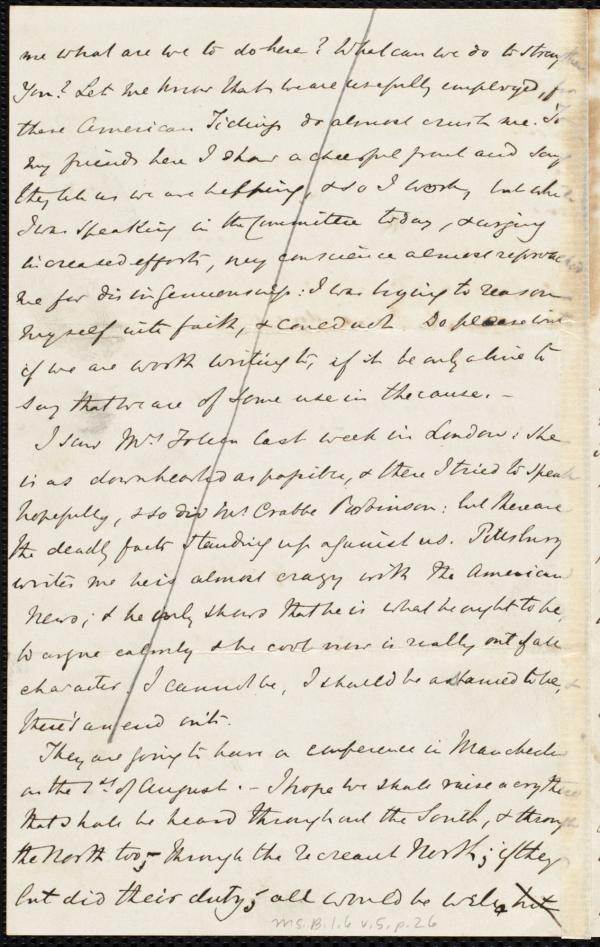 me what are we to do here? What can we do to strengthen
you? Let me know that we are usefully employed, for
these American Tidings do almost crush me. To
my friends here I show a cheerful front and say
they tell us we are helping, & so I work, but while
I was speaking in the Committee today, & urging
increased efforts, my conscience almost reproached
me for disingenuousness: I was trying to reason
myself into faith, & could not. Do please write
if we are worth writing to, if it be only a line to
say that we are of some use in the cause. -
I saw Mrs Follen last week in London: she
is as downhearted as possible, & there I tried to speak
hopefully, & so did Mr Crabbe Robinson: but there are
the deadly facts standing up against us. Pillsbury
writes me he is almost crazy with the American
News; & he only shows that he is what he ought to be,
to argue calmly & be cool now is really out of all
character. I cannot be, I should be ashamed to be, &
there's an end on't.
They are going to have a conference in Manchester
on the 1st of August. - I hope we shall raise a cry there
that shall be heard throughout the South, & through
the North too; through the recreant North; if they
but did their duty, all would be well, but
Ms. B. 1. 6 v. 5, p. 26